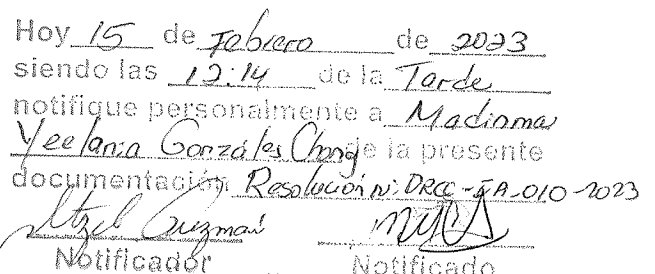 Hoy 15 de Febrero de 2023
siendo las 12:14 de la Tarde
notifique personalmente a Madinma
Yeelania Gonzáles Chong de la presente
documentación Resolución N: DRCC-IA-010-2023
Itzel Guzmán
Notificador Notificado